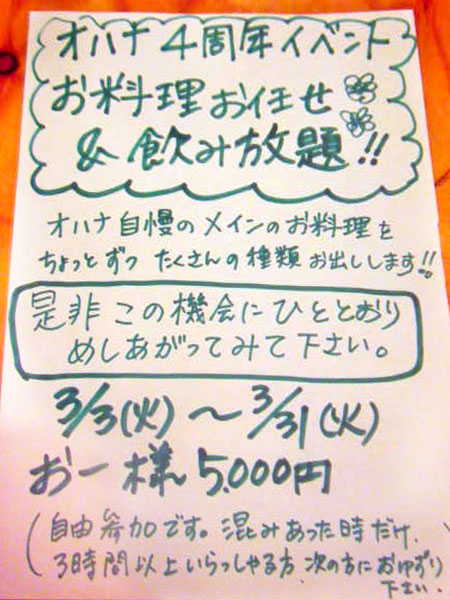 オハナ4周年イベント
お料理お任せ
&飲み放題!!
オハナ自慢のメインのお料理を
ちょっとずつたくさんの種類お出しします!!
是非この機会にひととおり
めしあがってみて下さい。
3/3(火)〜3/31(火)
お一様5,000円
(自由参加です。混みあった時だけ、
3時間以上いらっしゃる方、次の方におゆずり
下さい。)